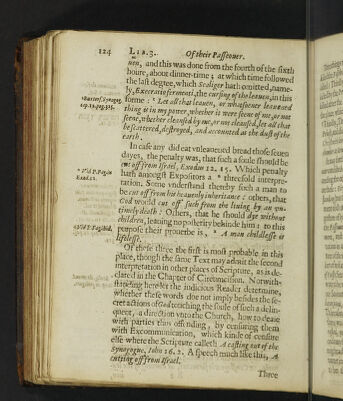 124 LIB.3. Of their Passeover.
non, and this was done from the fourth of the sixth
houre, about dinner-time; at which time followed
the last degree, which Scaliger hath omitted, name-
ly, Execratio fermenti, the cursing of the leaven, in this
forme: Let all that leaven, or whatsoever leavened
thing is in my power, whether it were seene of me, or not
seene, whether cleansed by me, or not cleansed, let all that
be scattered, destroyed, and accounted as the dust of the
earth.
In case any did eat unleavened bread those seven
dayes, the penalty was, that such a soule should be
cut off from Israel, Exodus 12. 15. Which penalty
hath amongst Expositors a threefold interpre-
tation. Some understand thereby such a man to
be cut off from his heavenly inheritance: others, that
God would cut off such from the living by an un-
timely death: Others, that he should dye without
children, leaving no posterity behinde him: to this
purpose their proverbe is, A man childlesse is
lifelesse.
Of these three the first is most probable in this
place, though the same Text may admit the second
interpretation in other places of Scripture, as is de-
clared in the Chapter of Circumcision. Notwith-
standing here let the judicious Reader determine,
whether these words doe not imply besides the se-
cret actions of God touching the soule of such a delin-
quent, a direction unto the Church, how to deale
with parties thus offending, by censuring them
with Excommunication, which kinde of censure
else where the Scripture calleth A casting out of the
Synagogue, John 16. 2. A speech much like this, A
cutting off from Israel.
Three